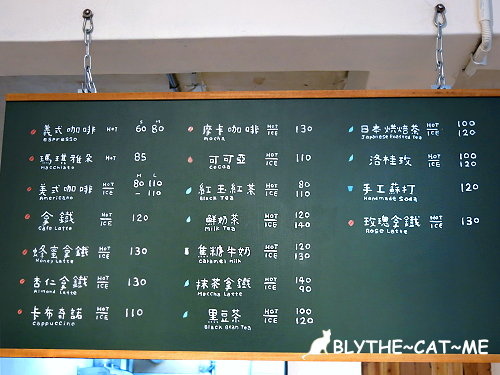 S M
義式咖啡 HOT 60 80
espresso
瑪琪雅朵 HOT 85
Macchiato
M L
美式咖啡 HOT 80 110
Americano ICE 110
拿鐵 HOT ICE 120
Cafe Latte
蜂蜜拿鐵 HOT ICE 130
Honey Latte
杏仁拿鐵 HOT ICE 130
Almond Latte
卡布奇諾 HOT ICE 110
cappuccino
摩卡咖啡 HOT ICE 130
mocha
可可亞 HOT ICE 110
cocoa
紅玉紅茶 HOT 80
Black Tea ICE 110
鮮奶茶 HOT 120
Milk Tea ICE 140
焦糖牛奶 HOT 120
Caramel Milk ICE 130
抹茶拿鐵 HOT 140
Maccha Latte ICE 90
黑豆茶 HOT 100
Black Bean Tea ICE 120
日本烘焙茶 HOT 100
Japanese Roasted Tea ICE 120
洛桂玫 HOT 100
ICE 120
手工蘇打 120
Handmade Soda
玫瑰拿鐵 HOT ICE 130
Rose Latte
BLYTHE~CAT~ME